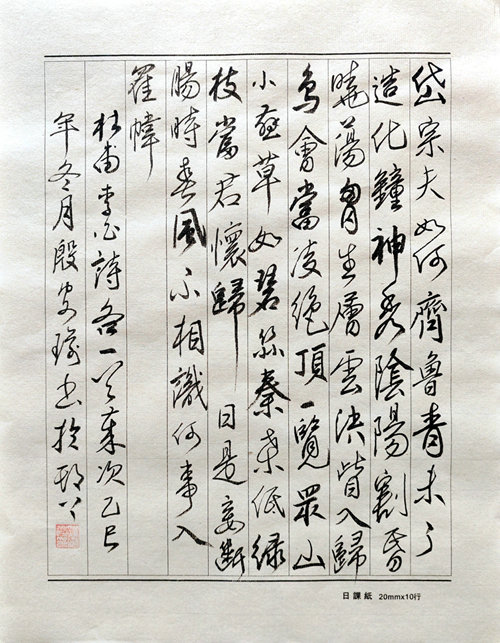 岱宗夫如何齊魯青未了
造化鐘神秀陰陽割昏
曉蕩胸生層雲決眥入歸
鳥會當凌絕頂一覽眾山
小燕草如碧絲秦桑低綠
枝當君懷歸日是妾斷
腸時春風不相識何事入
羅幃
杜甫李白詩各一首歲次乙巳
年冬月殷書於
日課紙 20mmx10行